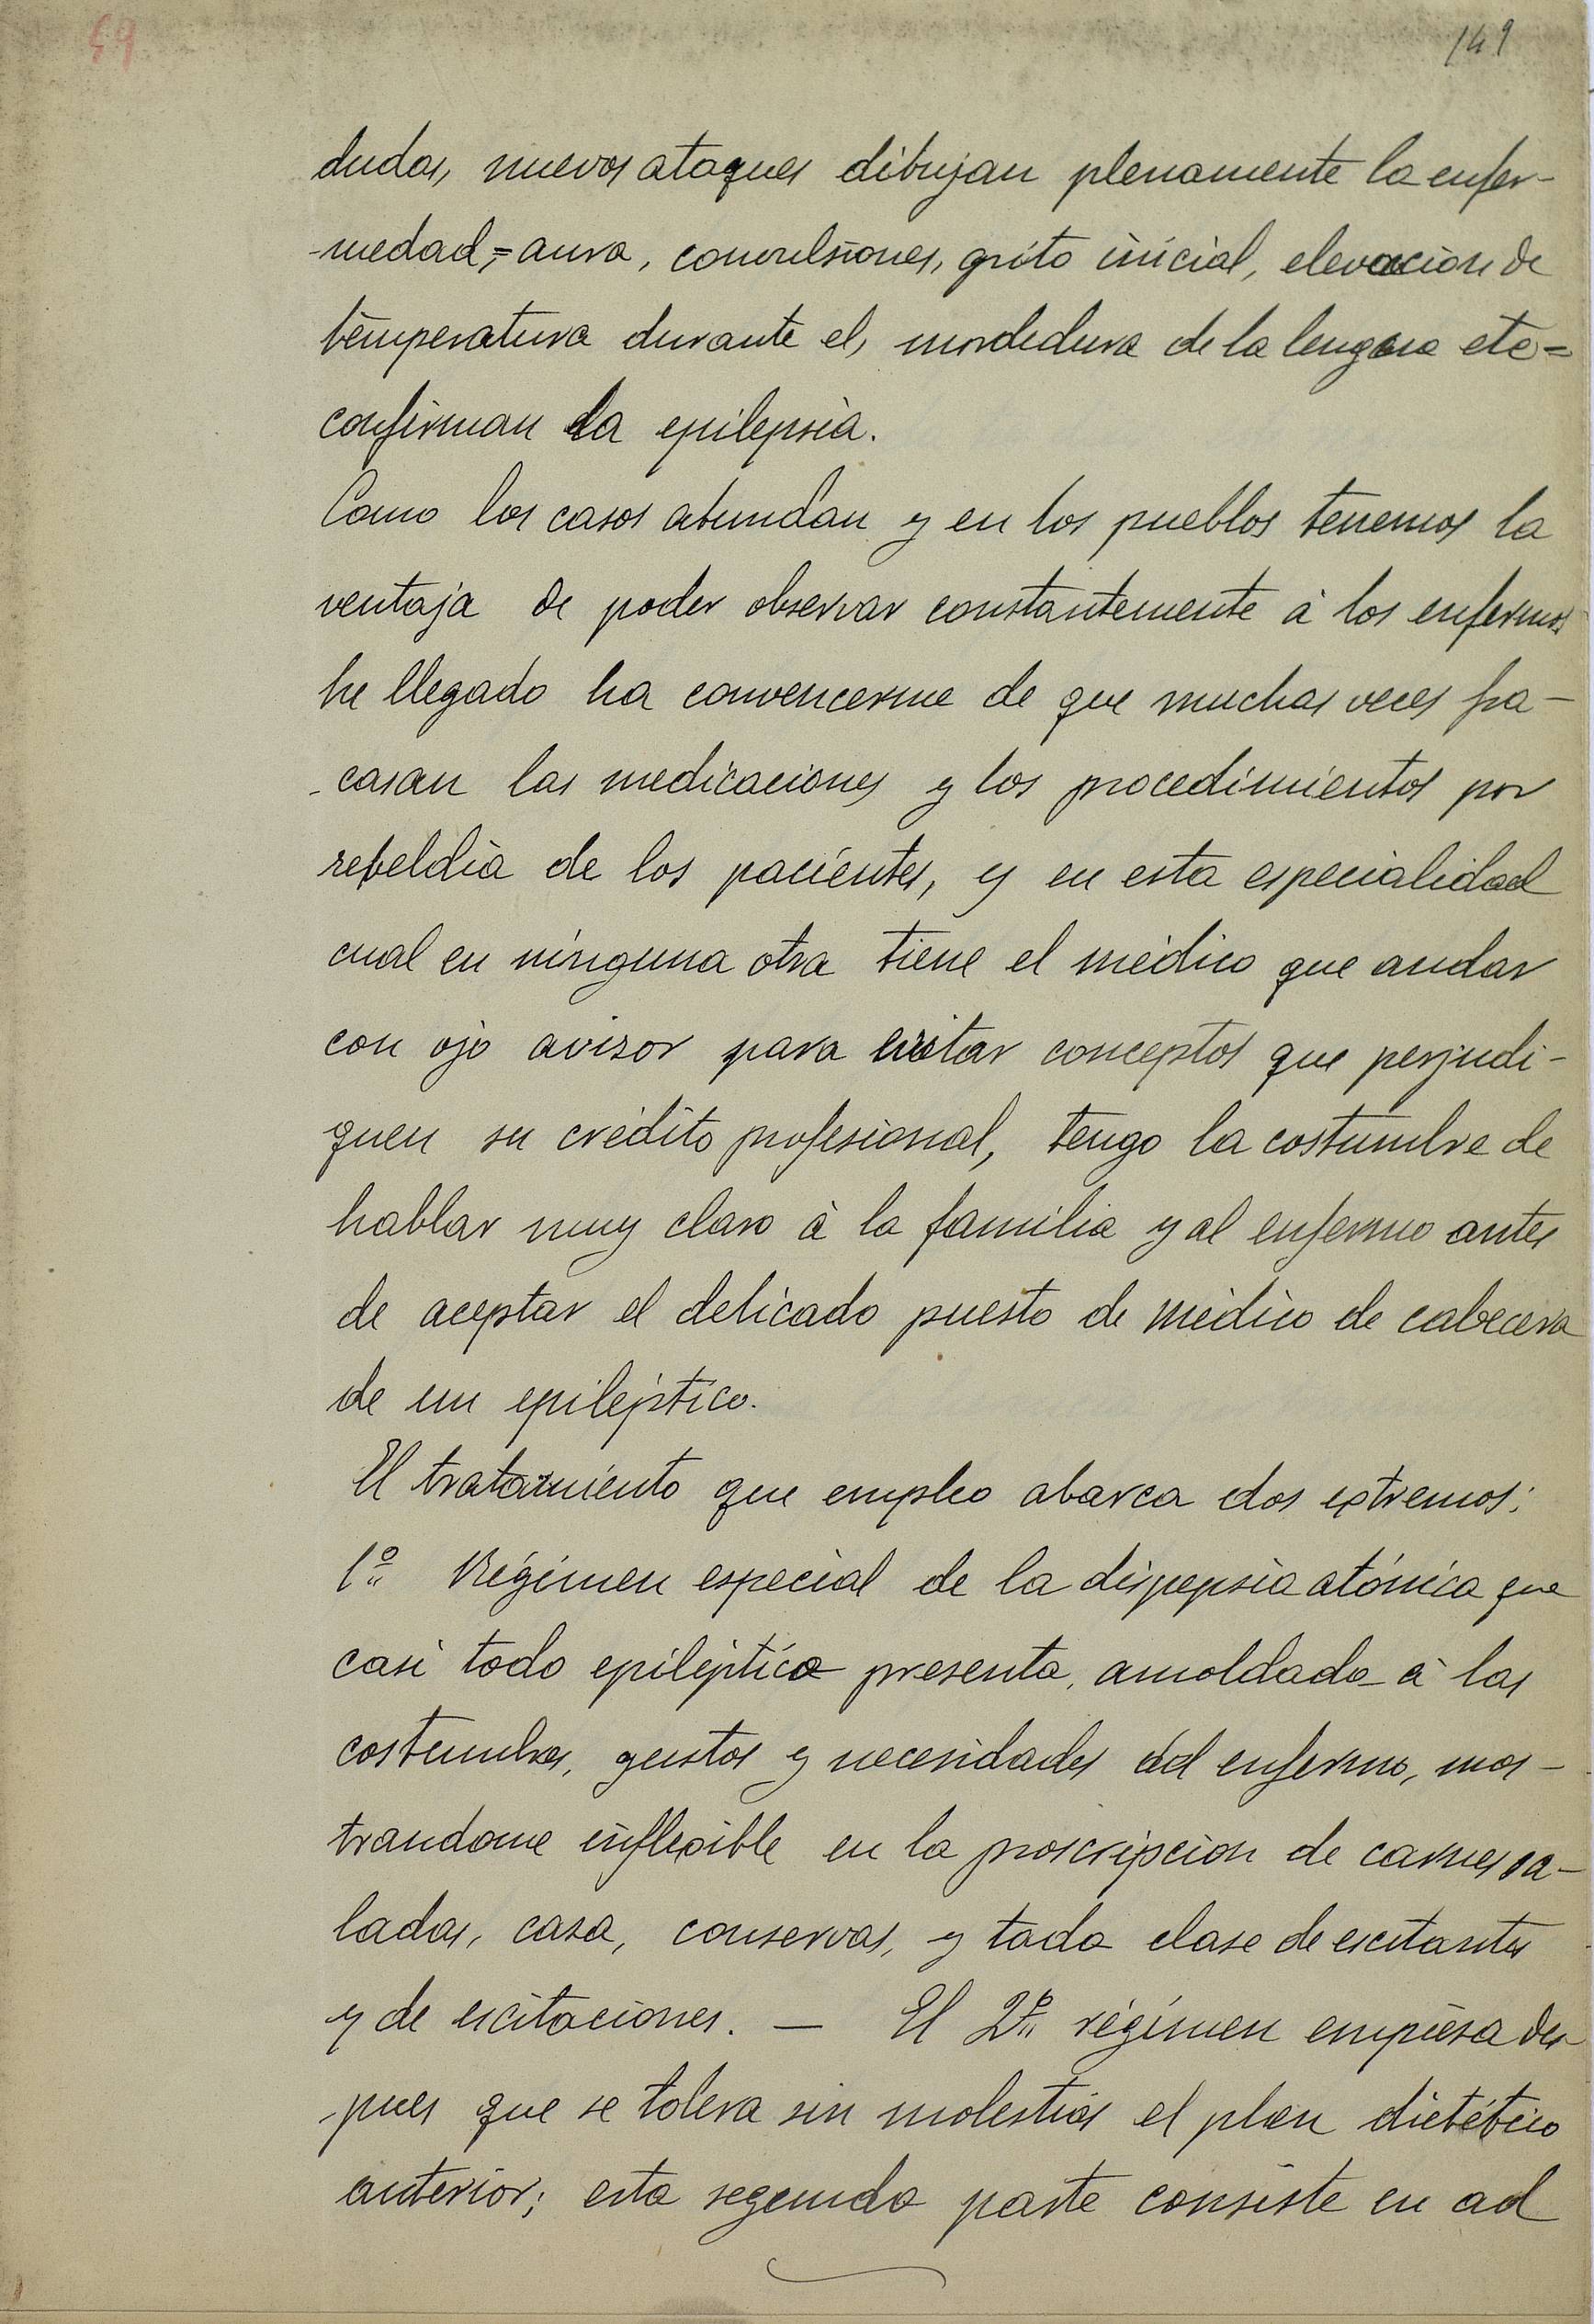 69
149
dudas, nuevos ataques dibujan plenamente la enfer-
-medad,=aura, convulsiones, grito inicial, elevación de
temperatura durante el, mordedura de la lengua etc=
confirman la epilepsia.
Como los casos abundan y en los pueblos tenemos la
ventaja de poder observar constantemente à los enfermos
he llegado ha convencerme de que muchas veces fra-
-casan las medicaciones y los procedimientos por
rebeldia de los pacientes, y en esta especialidad
cual en ninguna otra tiene el médico que andar
con ojo avizor para evitar conceptos que perjudi-
quen su crédito profesional, tengo la costumbre de
hablar muy claro à la familia y al enfermo antes
de aceptar el delicado puesto de médico de cabecera
de un epiléptico.
El tratamiento que empleo abarca dos extremos:
1º Régimen especial de la dispepsia atónica que
casi todo epiléptico presenta, amoldado à las
costumbres, gustos y necesidades del enfermo, mos-
trandome inflexible en la proscripcion de carnes sa-
ladas, casa, conservas, y toda clase de escitantes
y de escitaciones. — El 2º régimen empiesa des-
-pues que se tolera sin molestias el plan dietético
anterior; esta segunda parte consiste en ad